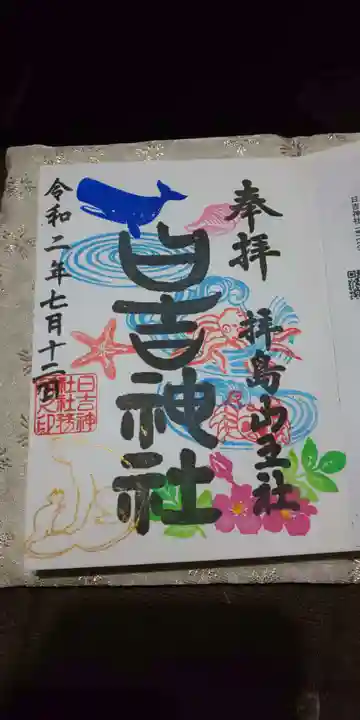 奉拝
拝島山王社
日吉神社
令和二年七月十二日
日吉神
社社務
之印